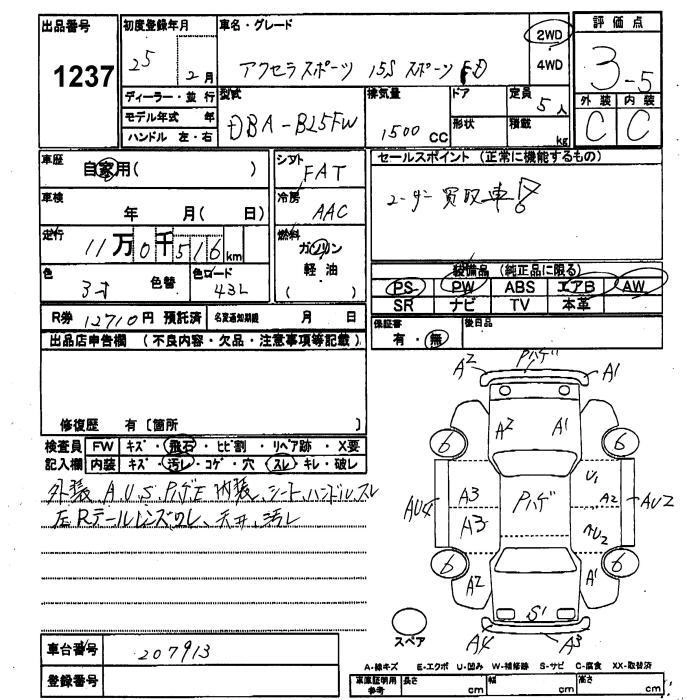 出品番号
1237
初度登録年月
25 2月
車名・グレード
アクセラスポーツ 15S スポーツ
2WD
4WD
評価点
3-5
外装 内装
C C
ディーラー・並行
モデル年式 年
ハンドル 左・右
型式
DBA-BL5FW
排気量
1500 CC
ドア
形状
定員
5人
積載
kg
車歴
自家用( )
車検
年 月( 日)
走行
11万0千516km
色
色替
色ロード
43L
シフト
FAT
冷房
AAC
燃料
ガソリン
軽油
( )
セールスポイント (正常に機能するもの)
ユーザー買取車
装備品 (純正品に限る)
PS PW ABS エアB AW
SR ナビ TV 本革
R券 12710円 預託済 名変通知期限 月 日
保証書
有・無
後日品
出品店申告欄 (不良内容・欠品・注意事項等記載)
修復歴 有〔箇所 〕
検査員 FW キズ・飛石・ヒビ割・リペア跡・X要
記入欄 内装 キズ・汚レ・コゲ・穴・スレ・キレ・破レ
外装 A、U、S、PハゲE 内装、シート、ハンドルスレ
左Rテールレンズワレ、天井、汚レ
A2 Pハゲ A1
A2 A1
6 6
U1
AU4 A3 Pハゲ A2 AU2
A3 U2
6 6
A2 A1
S1
A4 A3
スペア
車台番号 207913
登録番号
A-線キズ E-エクボ U-凹み W-補修跡 S-サビ C-腐食 XX-取替済
車庫証明用
参考
長さ cm 幅 cm 高さ cm